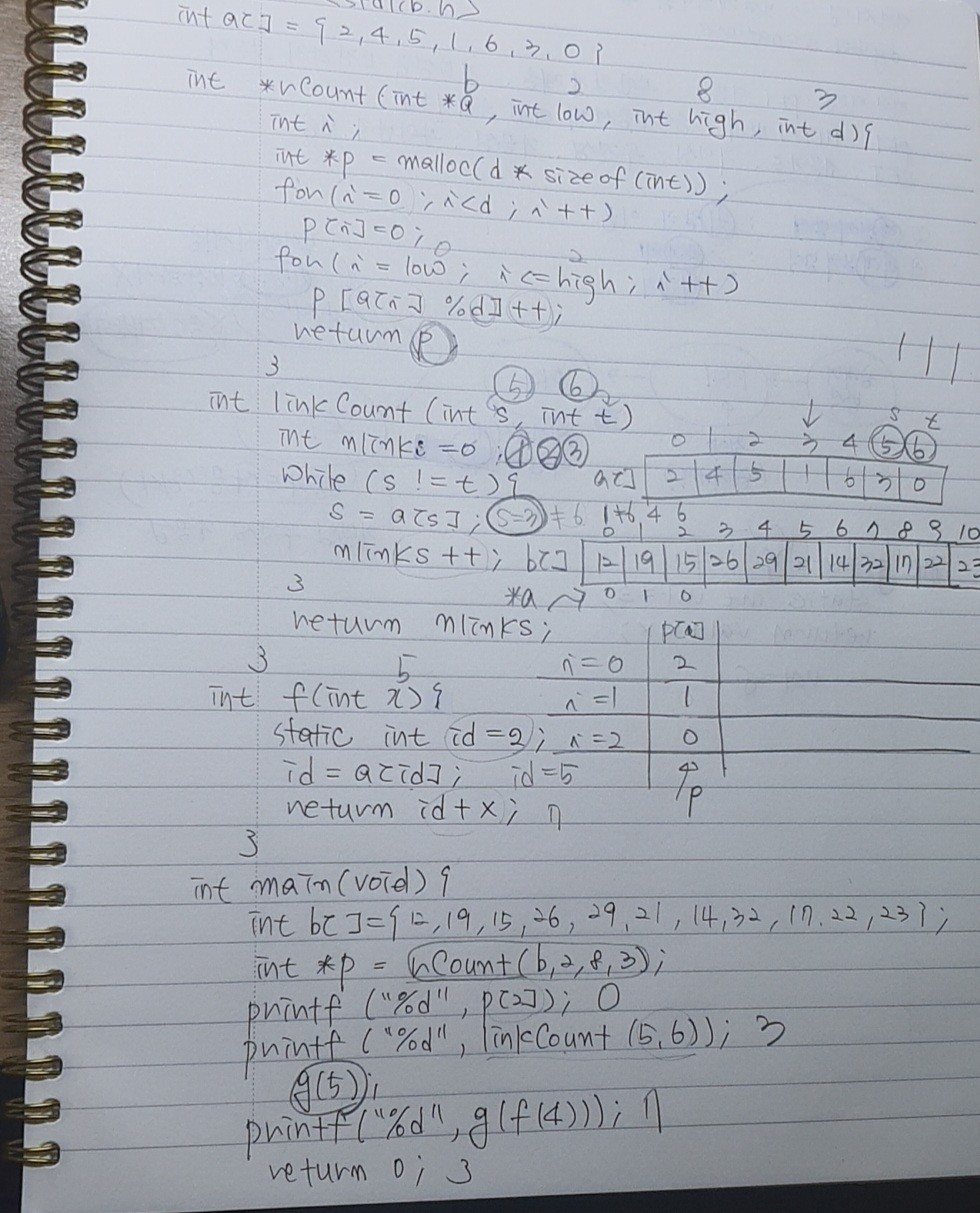 int a[] = { 2, 4, 5, 1, 6, 3, 0 }
b 2 8 3
int *nCount (int *a, int low, int high, int d) {
int i ;
int *p = malloc(d * sizeof (int)) ;
for (i=0 ; i<d ; i++)
p[i]=0 ;
0 2
for (i = low ; i <= high ; i ++)
p [a[i] % d] ++ ;
return p
}
5 6
int link Count (int s, int t)
int nlinks =0 ; 1 2 3
while (s != t) {
s = a[s] ; s=3 ≠ 6 1≠6, 4 6
nlinks ++ ;
}
return nlinks ;
}
s t
0 1 2 3 4 5 6
a[] 2 4 5 1 6 3 0
0 2 3 4 5 6 7 8 9 10
b[] 12 19 15 26 29 21 14 32 17 22 23
*a 0 1 0
p[a]
i=0 2
i=1 1
i=2 0
p
5
int f(int x) {
static int id =2 ;
id = a[id] ; id=5
return id + x ; 7
}
int main (void) {
int b[ ]={ 12, 19, 15, 26, 29, 21, 14, 32, 17. 22, 23 } ;
int *p = nCount (b, 2, 8, 3) ;
printf ("%d", p[2]) ; 0
printf ("%d", linkCount (5, 6)) ; 3
g(5) ;
printf("%d", g(f(4))) ; 7
return 0 ; }